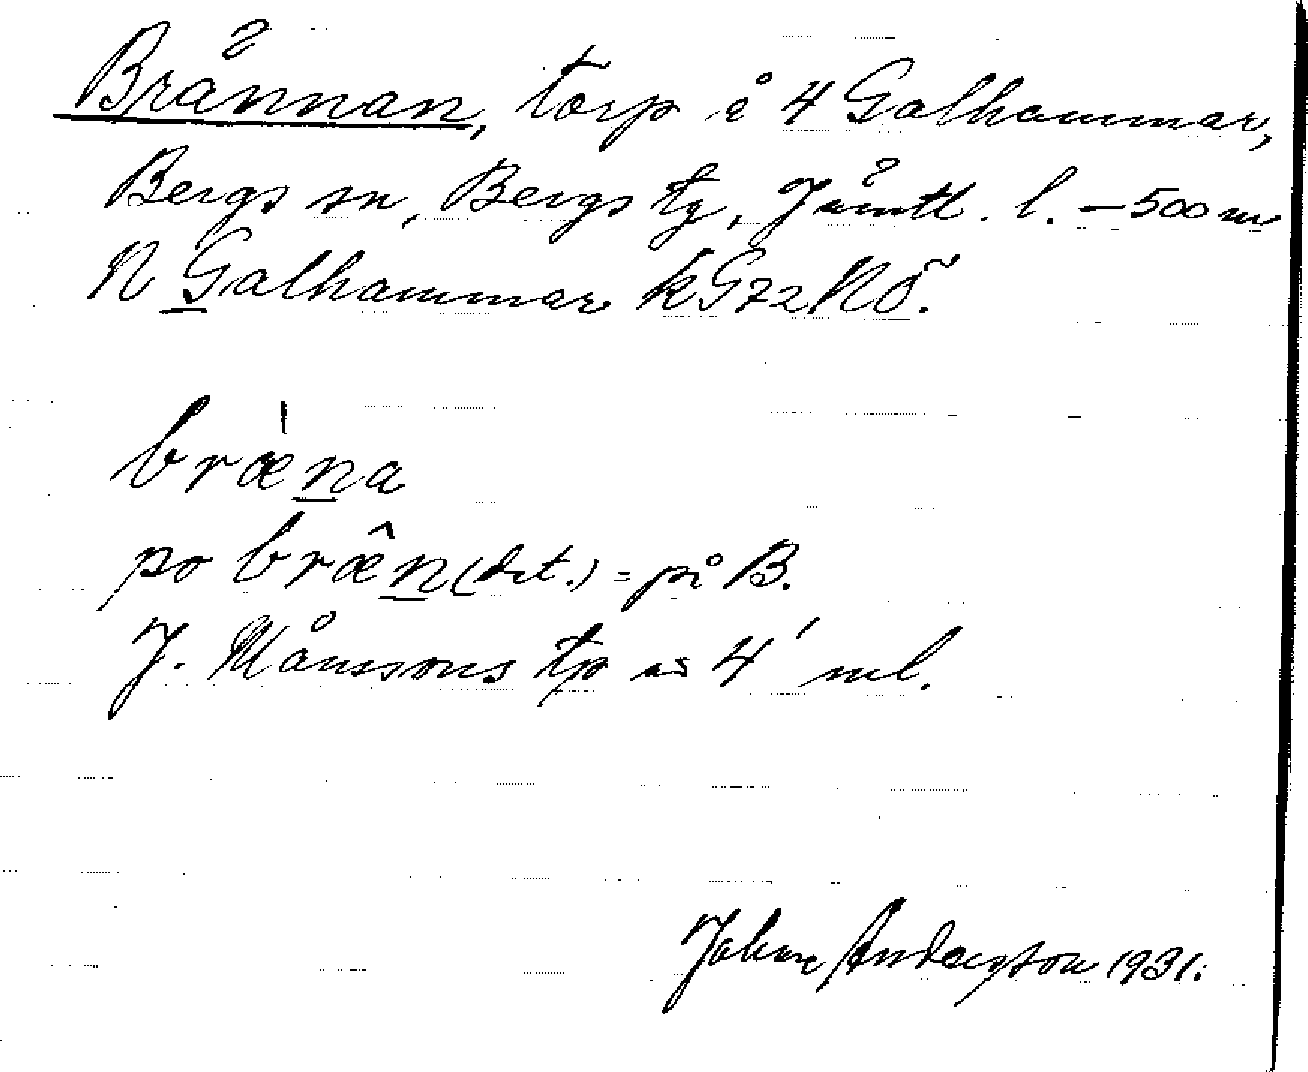 Brännan, torp å 4 Galhammar,
Bergs sn, Bergs tg, Jämtl. l. – 500 m
N Galhammar k G72NÖ.
bræ̀na
po bræ̂n (dat.) = på B.
J. Månssons tp å 4' ml.
Johan Andersson 1931.